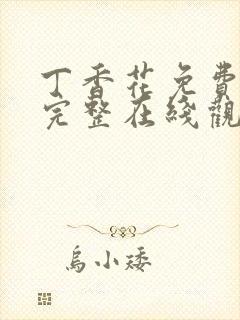 丁香花免費
完整在綫觀
烏小矮